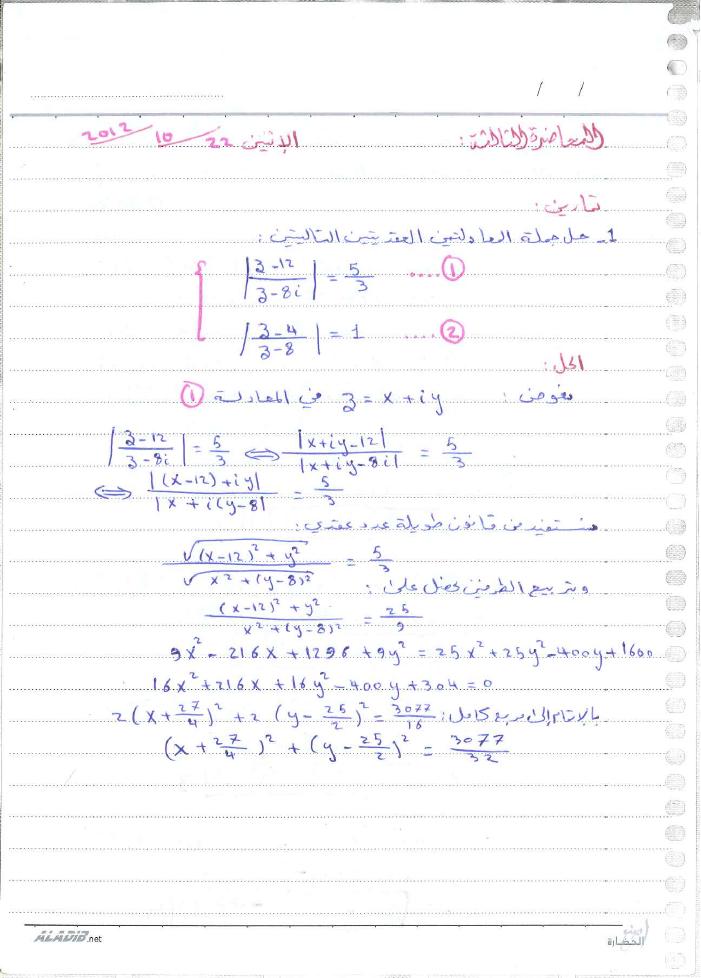 / /
المحاضرة الثالثة: الإثنين 22 / 10 / 2012
تمارين:
1- حل جملة المعادلتين العقديتين التاليتين:
|z-12 / z-8i| = 5/3 .... ①
|z-4 / z-8| = 1 .... ②
الحل:
نعوض: z = x + iy في المعادلة ①
|z-12 / z-8i| = 5/3 ⟺ |x+iy-12| / |x+iy-8i| = 5/3
⟺ |(x-12)+iy| / |x+i(y-8| = 5/3
نستفيد من قانون طويلة عدد عقدي:
√((x-12)² + y²) / √(x² + (y-8)²) = 5/3
وتربيع الطرفين نحصل على:
(x-12)² + y² / x² + (y-8)² = 25/9
9x² - 216x + 1296 + 9y² = 25x² + 25y² - 400y + 1600
16x² + 216x + 16y² - 400y + 304 = 0
بالإتمام إلى مربع كامل: 2(x + 27/4)² + 2(y - 25/2)² = 3077/16
(x + 27/4)² + (y - 25/2)² = 3077/32
ALADIB.net
الحضارة